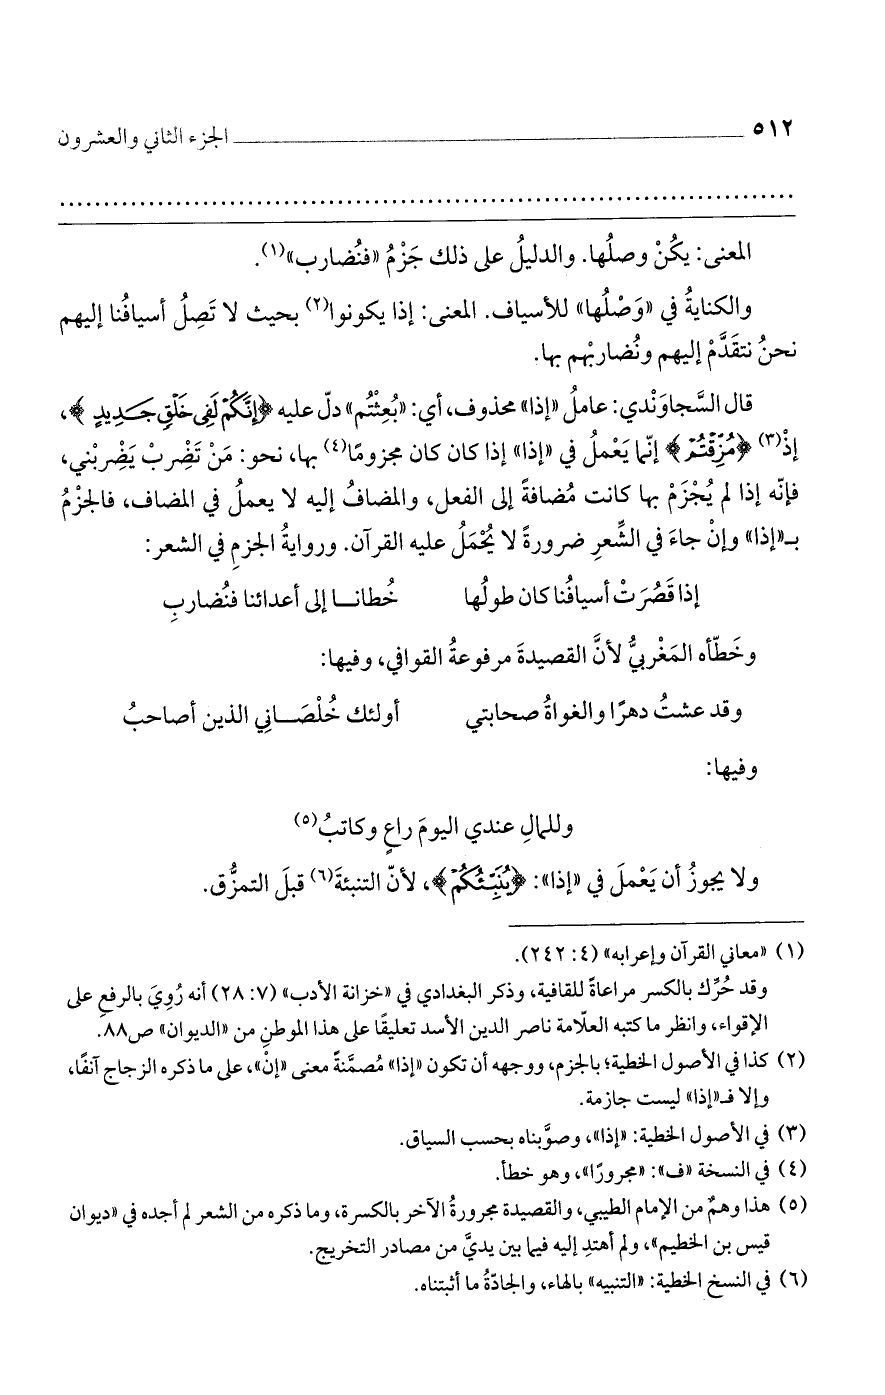 ٥١٢ ــــــــ الجزء الثاني والعشرون
المعنى: يكُنْ وصلُها. والدليلُ على ذلك جَزْمُ «فنُضارب»(١).
والكنايةُ في «وَصْلُها» للأسياف. المعنى: إذا يكونوا(٢) بحيث لا تَصِلُ أسيافُنا إليهم
نحنُ نتقَدَّمْ إليهم ونُضاربْهم بها.
قال السَّجاوَندي: عاملُ «إذا» محذوف، أي: «بُعِثْتُم» دلّ عليه ﴿إِنَّكُمْ لَفِى خَلْقٍ جَدِيدٍ﴾،
إذْ(٣) ﴿مُزِّقْتُمْ﴾ إنّما يَعْملُ في «إذا» إذا كان كان مجزومًا(٤) بها، نحو: مَنْ تَضْربْ يَضْربْني،
فإنّه إذا لم يُجْزَمْ بها كانت مُضافةً إلى الفعل، والمضافُ إليه لا يعملُ في المضاف، فالجزْمُ
بـ«إذا» وإنْ جاءَ في الشِّعرِ ضرورةً لا يُحْمَلُ عليه القرآن. وروايةُ الجزمِ في الشعر:
إذا قَصُرَتْ أسيافُنا كان طولُها خُطانــا إلى أعدائنا فنُضاربِ
وخَطّأه المَغْربيُّ لأنَّ القصيدةَ مرفوعةُ القوافي، وفيها:
وقد عشتُ دهرًا والغواةُ صحابتي أولئك خُلْصَــانِي الذين أصاحبُ
وفيها:
وللمالِ عندي اليومَ راعٍ وكاتبُ(٥)
ولا يجوزُ أن يَعْملَ في «إذا»: ﴿يُنَبِّئُكُمْ﴾، لأنّ التنبئةَ(٦) قبلَ التمزُّق.
(١) «معاني القرآن وإعرابه» (٤: ٢٤٢).
وقد حُرِّك بالكسر مراعاةً للقافية، وذكر البغدادي في «خزانة الأدب» (٧: ٢٨) أنه رُوِيَ بالرفعِ على
الإقواء، وانظر ما كتبه العلّامة ناصر الدين الأسد تعليقًا على هذا الموطنِ من «الديوان» ص٨٨.
(٢) كذا في الأصول الخطية؛ بالجزم، ووجهه أن تكون «إذا» مُصمَّنةً معنى «إنْ»، على ما ذكره الزجاج آنفًا،
وإلا فـ«إذا» ليست جازمة.
(٣) في الأصول الخطية: «إذا»، وصوَّبناه بحسب السياق.
(٤) في النسخة «ف»: «مجرورًا»، وهو خطأ.
(٥) هذا وهمٌ من الإمام الطيبي، والقصيدة مجرورةُ الآخر بالكسرة، وما ذكره من الشعر لم أجده في «ديوان
قيس بن الخطيم»، ولم أهتدِ إليه فيما بين يديَّ من مصادر التخريج.
(٦) في النسخ الخطية: «التنبيه» بالهاء، والجادّةُ ما أثبتناه.